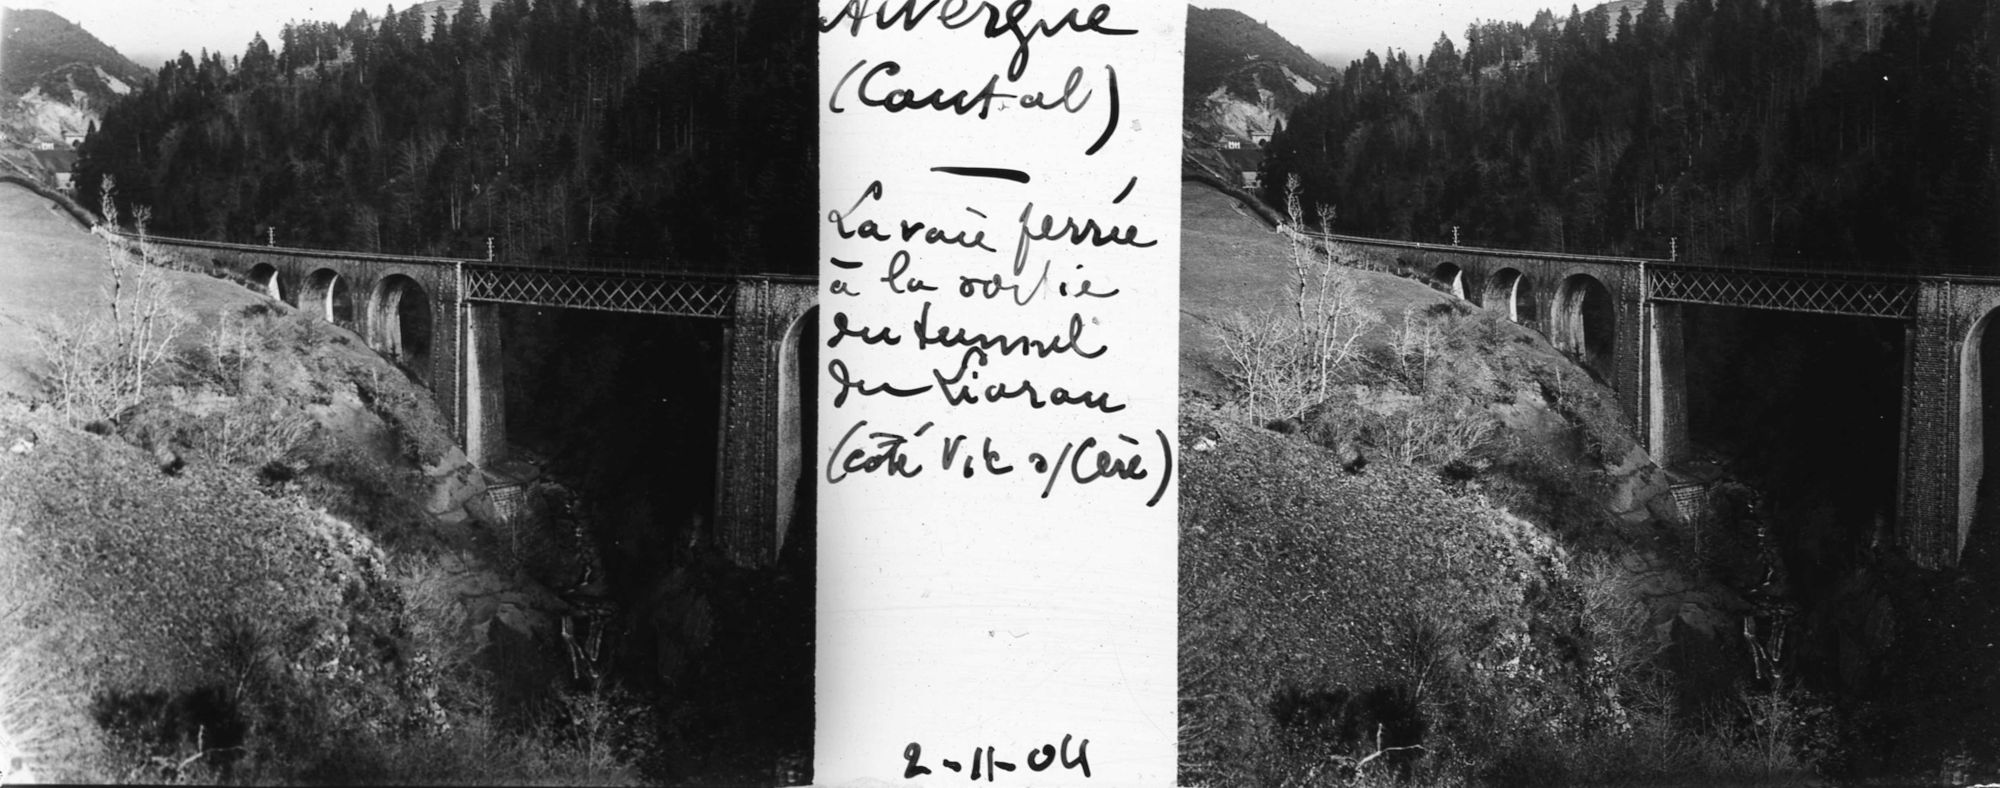 Auvergne
(Cantal)
La voie ferrée
à la sortie
du tunnel
du Lioran
(côté Vic s/Cère)
2-11-04